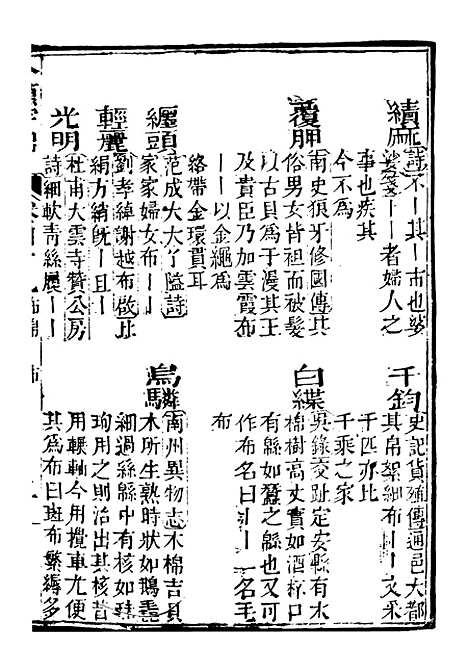 績麻
詩不丨其丨市也婆
娑箋丨丨者婦人之
事也疾其
今不為
千鈞
史記貨殖傳通邑大都
其帛絮細布丨丨文采
千匹亦比
千乘之家
覆胛
南史狼牙修國傳其
俗男女皆袒而被髮
以古貝為于漫其王
及貴臣乃加雲霞布
丨丨以金繩為
絡帶金環貫耳
白緤
吳錄交趾定安縣有木
棉樹高丈實如酒杯口
有緜如蠶之緜也又可
作布名曰丨丨一名毛
布
纏頭
范成大大丫隘詩
家家婦女布丨丨
輕麗
劉孝綽謝越布啟比
絹方綃既丨且丨
光明
杜甫大雲寺贊公房
詩細軟青絲履丨丨
烏驎
南州異物志木棉吉貝
木所生熟時狀如鵝毳
細過絲緜中有核如珠
珣用之則治出其核昔
用輾軸今用攪車尤便
其為布曰斑布繁縟多